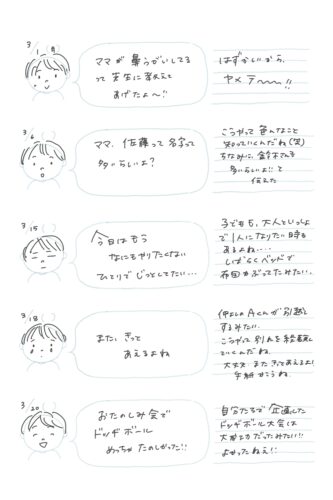 3/1
ママが鼻うがいしてる
って先生に教えて
あげたよ〜!!
はずかしいから、
ヤメテ〜〜!!
3/6
ママ、佐藤って名字って
多いらしいよ?
こうやって色んなこと
知っていくんだね(笑)
ちなみに、鈴木さんも
多いらしいよ!!と
伝えた
3/15
今日はもう
なにもやりたくない
ひとりでじっとしてたい…
子どもも、大人といっしょ
で1人になりたい時も
あるよね…。
しばらくベッドで
布団かぶってたみたい。
3/18
また、きっと
あえるよね
仲よしのAくんが引越し
するみたい。
こうやって別れを経験し
ていくんだね。
大丈夫 またきっとあえるよ!
手紙かこうね。
3/20
おたのしみ会で
ドッヂボール
めっちゃたのしかった!!
自分たちで企画した
ドッヂボール大会は
大成功だったみたい!!
よかったねぇ!!